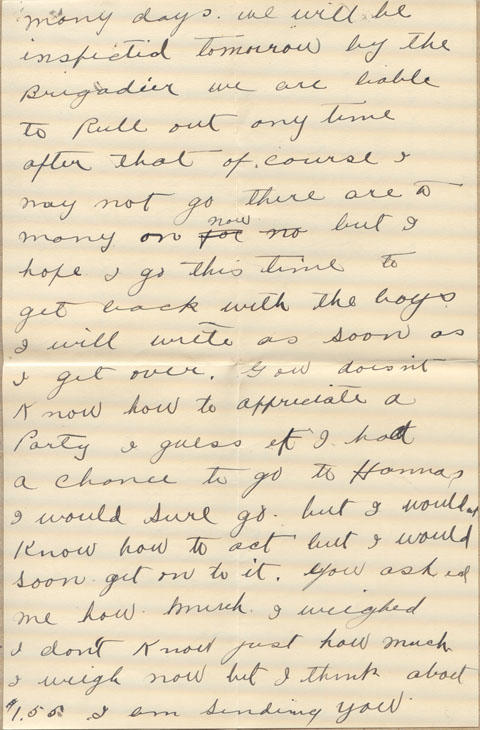 many days. we will be
inspected tomorrow by the
Brigadier we are liable
to Pull out any time
after that of course I
may not go there are to
many on now for no but I
hope I go this time to
get back with the boys
I will write as soon as
I get over. doesnt
Know how to appriciate a
Party I guess if I had
a chance to go to Hannas
I would sure go. but I wouldnt
Know how to act but I would
soon get on to it. You asked
me how much I weighed
I dont Know just how much
I weigh now but I think about
155 I am sending you